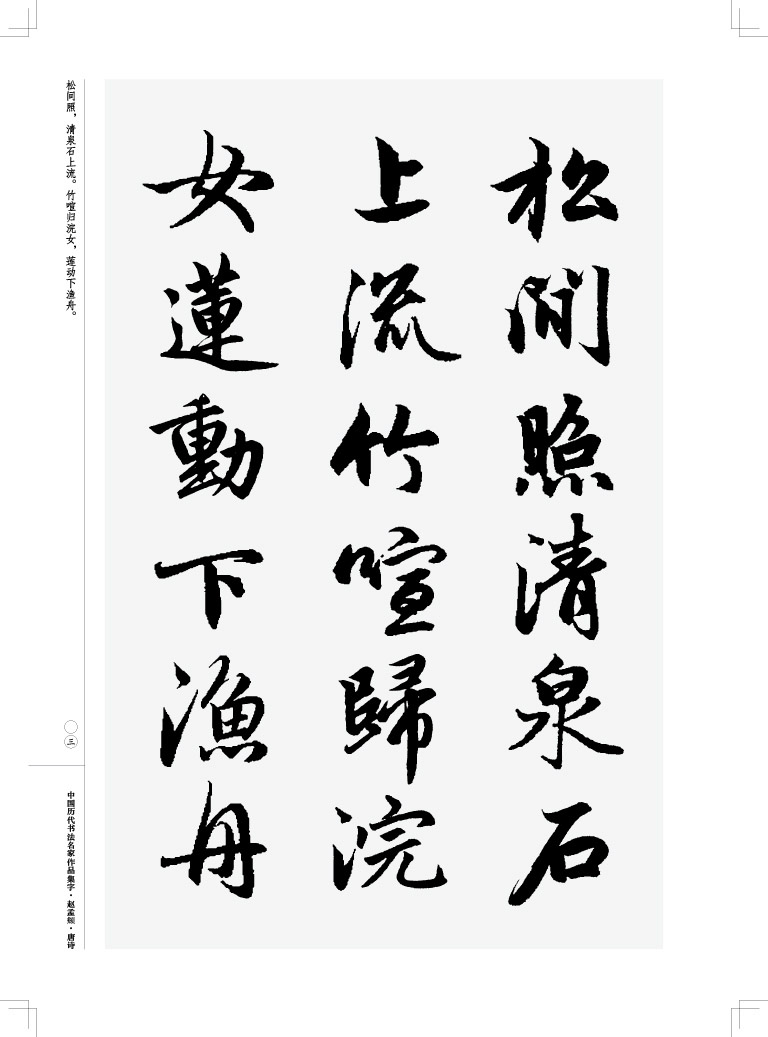 松間照清泉石
上流竹喧歸浣
女蓮動下漁舟
松间照，清泉石上流。竹喧归浣女，莲动下渔舟。
〇三
中国历代书法名家作品集字·赵孟頫·唐诗